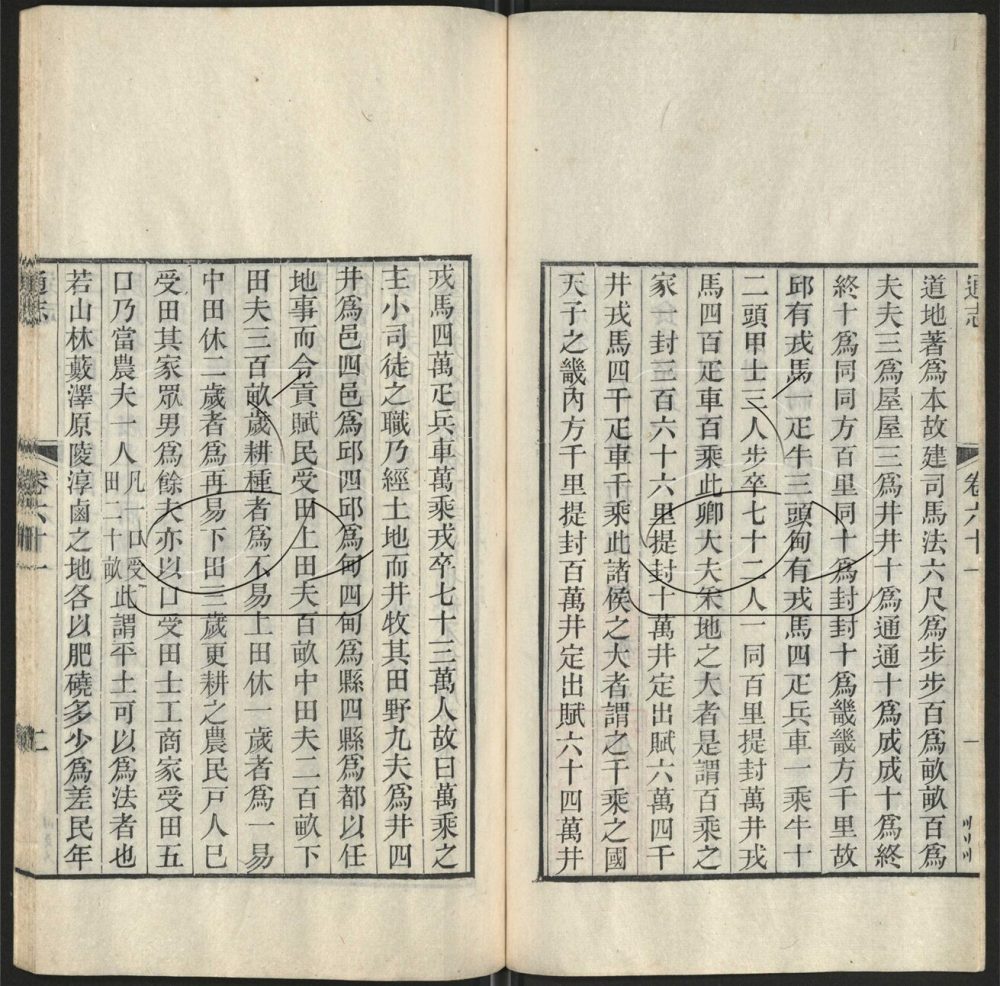 通志
卷六十一
一
道地著爲本故建司馬法六尺爲步步百爲畝畝百爲
夫夫三爲屋屋三爲井井十爲通通十爲成成十爲終
終十爲同同方百里同十爲封封十爲畿畿方千里故
邱有戎馬一疋牛三頭甸有戎馬四疋兵車一乘牛十
二頭甲士三人步卒七十二人一同百里提封萬井戎
馬四百疋車百乘此卿大夫采地之大者是謂百乘之
家一封三百六十六里提封十萬井定出賦六萬四千
井戎馬四千疋車千乘此諸侯之大者謂之千乘之國
天子之畿內方千里提封百萬井定出賦六十四萬井
戎馬四萬疋兵車萬乘戎卒七十三萬人故曰萬乘之
主小司徒之職乃經土地而井牧其田野九夫爲井四
井爲邑四邑爲邱四邱爲甸四甸爲縣四縣爲都以任
地事而令貢賦民受田上田夫百畝中田夫二百畝下
田夫三百畝歲耕種者爲不易上田休一歲者爲一易
中田休二歲者爲再易下田三歲更耕之農民戸人已
受田其家眾男爲餘夫亦以口受田士工商家受田五
口乃當農夫一人凡一口受田二十畝此謂平土可以爲法者也
若山林藪澤原陵淳鹵之地各以肥磽多少爲差民年
通志
卷六十一
二